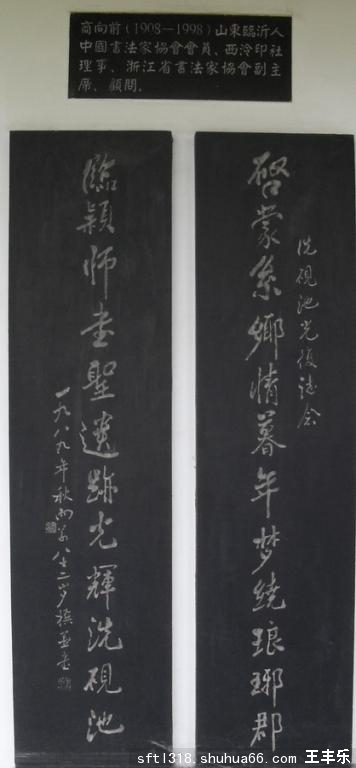 商向前(1908—1998)山東臨沂人
中國書法家協會會員、西泠印社
理事、浙江省書法家協會副主
席、顧問。
洗硯池光復誌念
啓蒙系鄉情暮年梦繞琅琊郡
臨潁師書聖遺跡光輝洗硯池
一九八九年秋
sftl318.shuhua66.com 王丰乐